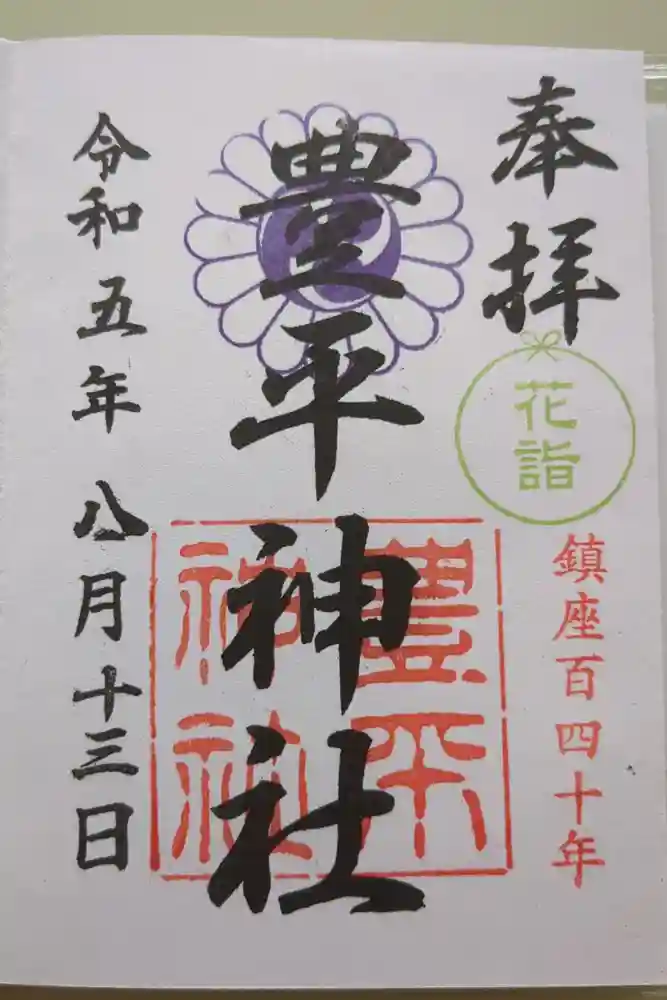 奉拝
花詣
鎮座百四十年
豊平神社
豊平
神社
令和五年 八月十三日